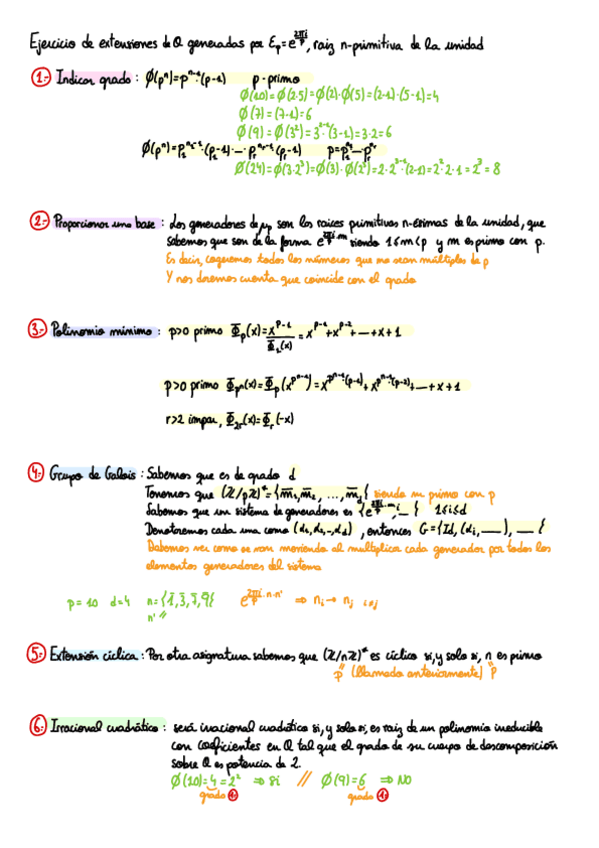 Ejercicio de extensiones de Q generadas por ξₚ = e^(2πi/p), raiz n-primitiva de la unidad
1.- Indicar grado : ϕ(pⁿ)=pⁿ⁻¹(p-1) p-primo
ϕ(10)=ϕ(2·5)=ϕ(2)·ϕ(5)=(2-1)·(5-1)=4
ϕ(7)=(7-1)=6
ϕ(9)=ϕ(3²)=3²⁻¹(3-1)=3·2=6
ϕ(pⁿ)=p₁ⁿ¹⁻¹·(p₁-1)·...·pᵣⁿʳ⁻¹·(pᵣ-1) p=p₁ⁿ¹...pᵣⁿʳ
ϕ(24)=ϕ(3·2³)=ϕ(3)·ϕ(2³)=2·2³⁻¹(2-1)=2²·2·1=2³=8
2.- Proporcionar una base : Los generadores de μₚ son las raices primitivas n-ésimas de la unidad, que
sabemos que son de la forma e^(2πi/p·m) siendo 1≤m<p y m es primo con p.
Es decir, cogeremos todos los números que no sean múltiplos de p
Y nos daremos cuenta que coincide con el grado
3.- Polinomio mínimo : p>0 primo Φₚ(x)=xᵖ-1/Φ₁(x) = xᵖ⁻¹+xᵖ⁻²+...+x+1
p>0 primo Φₚₙ(x)=Φₚ(x^(pⁿ⁻¹))=x^(pⁿ⁻¹·(p-1))+x^(pⁿ⁻¹·(p-2))+...+x+1
r>2 impar, Φ₂ᵣ(x)=Φᵣ(-x)
4.- Grupo de Galois : Sabemos que es de grado d
Tenemos que (Z/pZ)*={m̄₁,m̄₂, ...,m̄d} siendo mᵢ primo con p
Sabemos que un sistema de generadores es {e^(2πi/p·mᵢ),...} 1≤i≤d
Denotaremos cada uno como (α₁,α₂,..,αd), entonces G={Id, (αᵢ, ___), ...}
Debemos ver como se van moviendo al multiplicar cada generador por todos los
elementos generadores del sistema
p=10 d=4 n={1̄,3̄,7̄,9̄} e^(2πi/p·n·n') ⇒ nᵢ→nⱼ i≠j
n'"
5.- Extensión cíclica : Por otra asignatura sabemos que (Z/nZ)* es cíclico si, y solo si, n es primo
p" (llamado anteriormente) p
6.- Irracional cuadrático : será irracional cuadrático si, y solo si, es raiz de un polinomio irreducible
con coeficientes en Q tal que el grado de su cuerpo de descomposición
sobre Q es potencia de 2.
ϕ(10)=4=2² ⇒ Si // ϕ(9)=6 ⇒ NO
grado 1. grado 1.